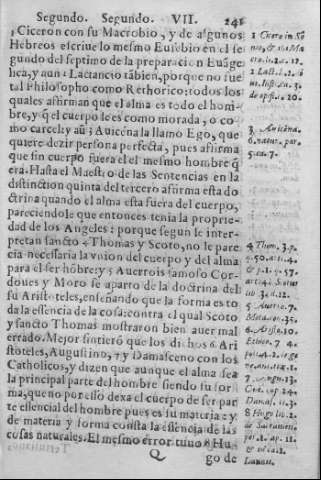 Segundo. Segundo. VII. 241
1 Ciceron con su Macrobio, y de algunos
Hebreos escriue lo mesmo Eusebio en el se
gundo del septimo de la preparacion Euãge
lica, y aun 2 Lactancio tãbien, porque no fue
tal Philosopho como Rethorico: todos los
quales affirman que el alma es todo el hom-
bre, y q̃ el cuerpo le es como morada, o co-
mo carcel: y aũ 3 Auicena la llamo Ego, que
quiere dezir persona perfecta, pues affirma
que sin cuerpo fuera el el mesmo hombre q̃
era. Hasta el Maestro de las Sentencias en la
distinction quinta del tercero afirma esta do
ctrina quando el alma esta fuera del cuerpo,
pareciendole que entonces tenia la proprie-
dad de los Angeles: porque segun le inter-
pretan sancto 4 Thomas y Scoto, no le pare
cia necessaria la vnion del cuerpo y del alma
para el ser hõbre: y 5 Auerrois famoso Cor-
doues y Moro se aparto de la doctrina del
su Aristoteles, enseñando que la forma es to
da la essencia de la cosa: contra el qual Scoto
y sancto Thomas mostraron bien auer mal
errado. Mejor sintierõ que los dichos 6 Ari
stoteles, Augustino, 7 y Damasceno con los
Catholicos, y dizen que aunque el alma sea
la principal parte del hombre siendo su for-
ma, que no por esso dexa el cuerpo de ser par
te essencial del hombre pues es su materia: y
de materia y forma consta la essencia de las
cosas naturales. El mesmo error tuuo 8 Hu-
Q
go de
1 Cicero in Sõ
2 Lact. l. 2.
de opif. c. 20.
3 Auicena.
6. natur. par.
5. ca. 7.
4 Thom. 3. p.
q. 50. art. 4.
5 Auerro. 7.
Metaph.
6 Aristo. 10.
Ethic. 7
7 Augu. 13.
Ciui. cap. 24.
Damas. li. 3.
8 Hugo lib. 2.
de Sacramen.
par. 1. cap. 11.